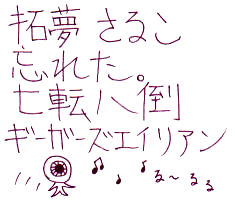 拓夢 さるこ
忘れた。
七転八倒
ギーガーズエイリアン
る〜るる